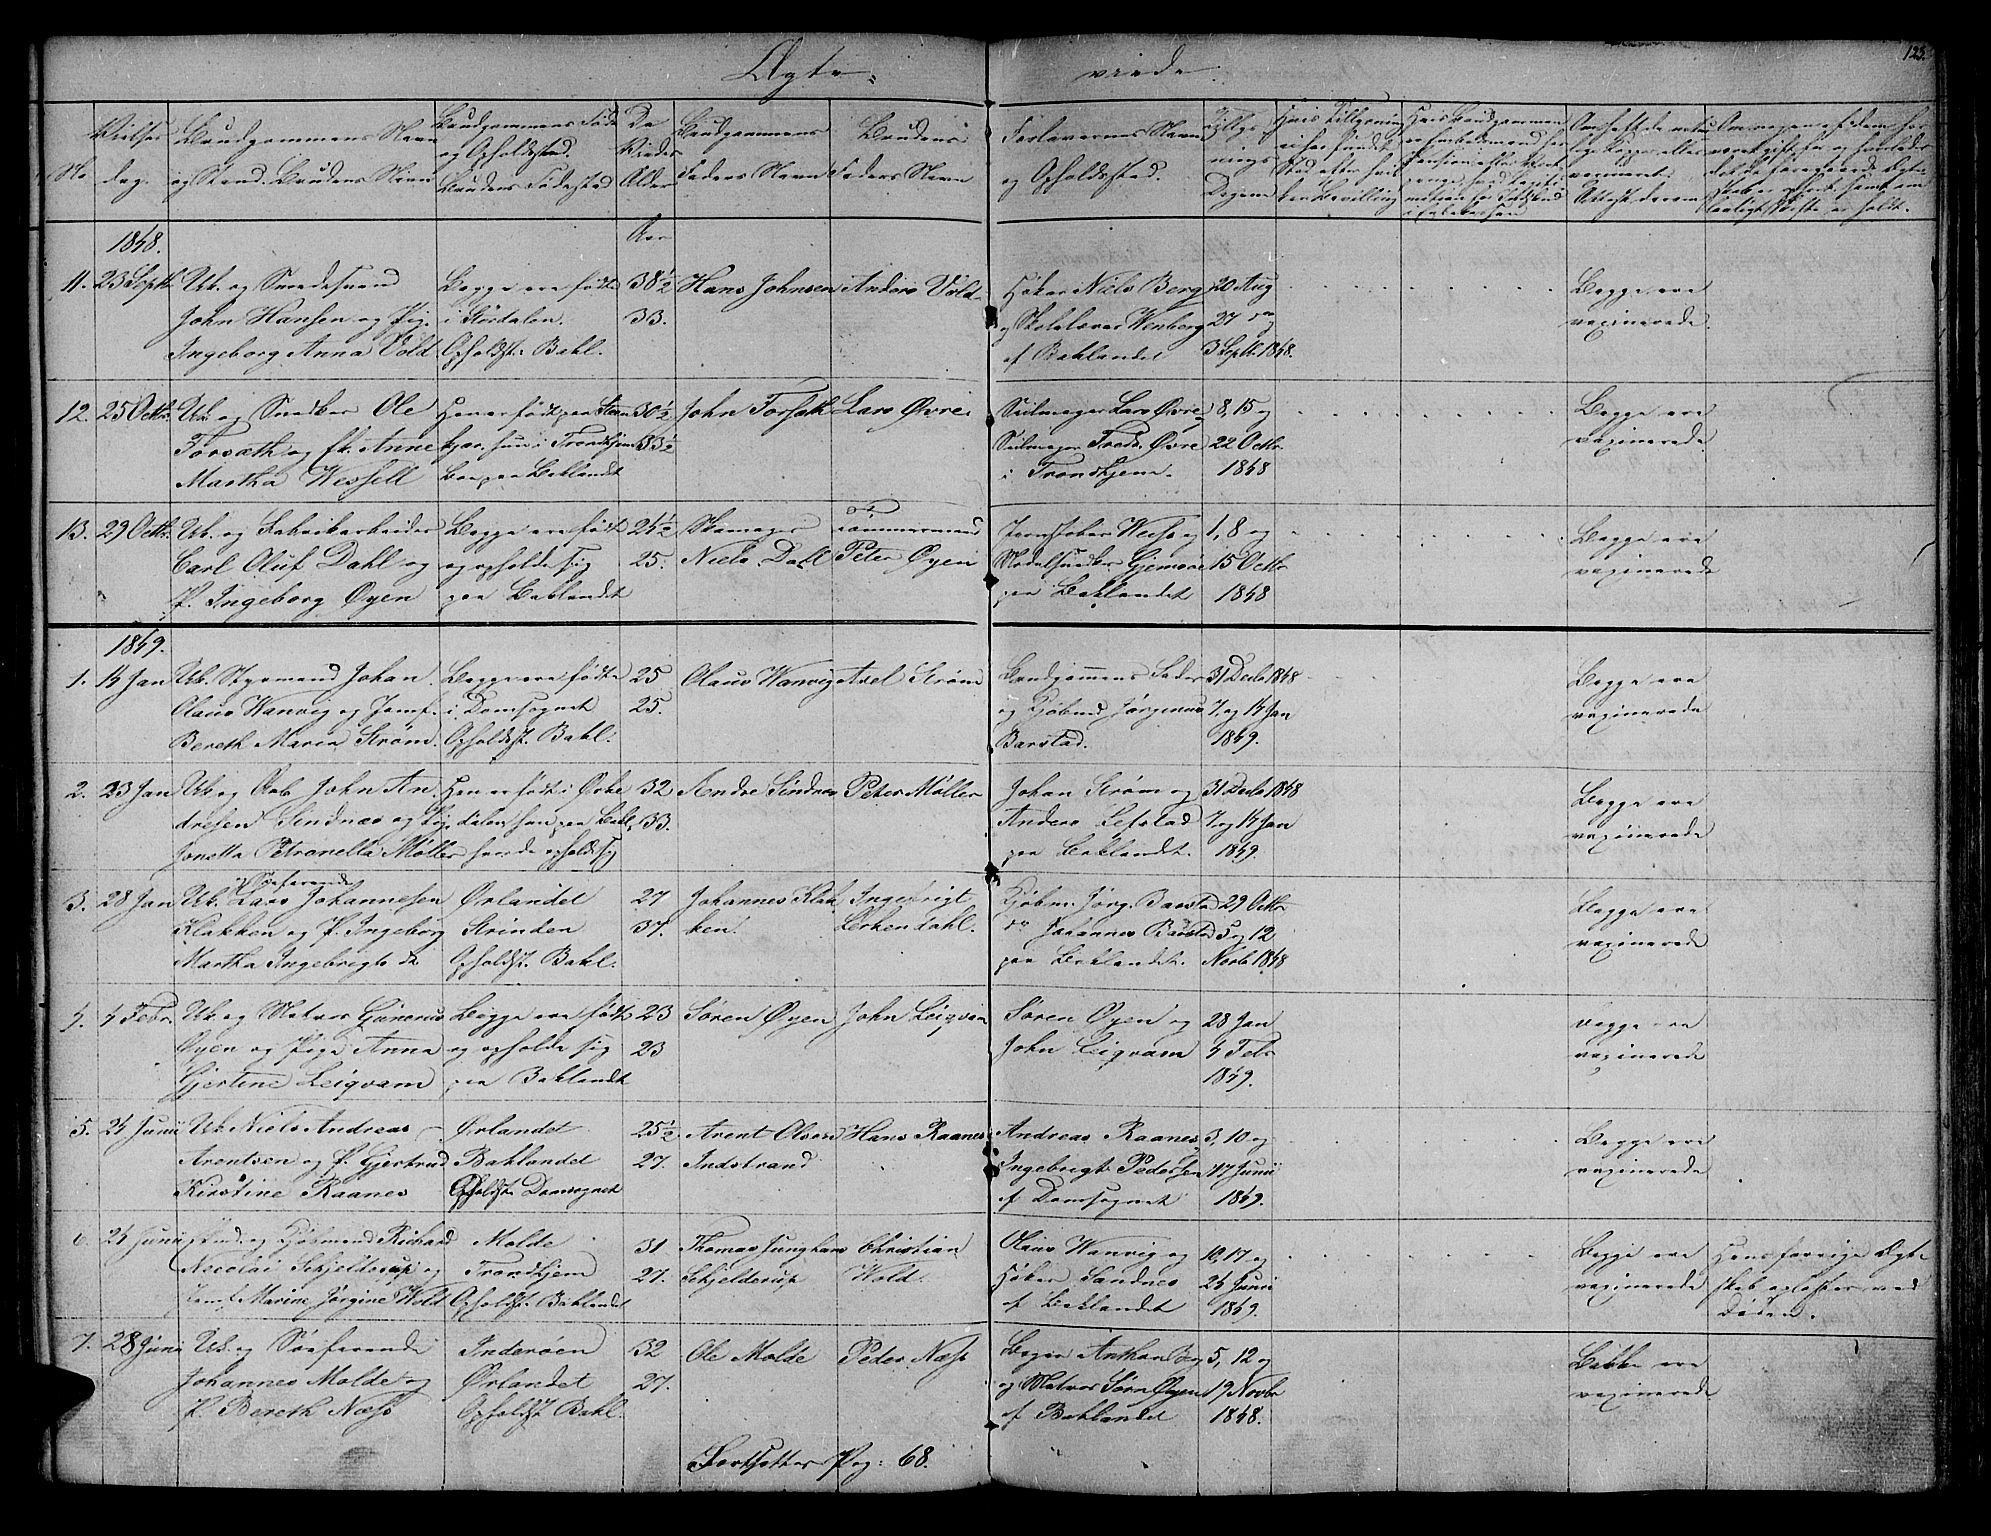 Ægte-
viede
123.
No
Vielses
dag.
Brudgommens Navn
og Stand. Brudens Navn
Brudgommens Føde
og Opholdsted.
Brudens Fødested
De
Viedes
Alder
Brudgommens
Faders Navn
Brudens
Faders Navn
Forlovernes Navn
og Opholdssted.
Tillys
nings
Dagene
1848.
Aar
11. 23 Septb.
Ub. og Smedesvend
John Hansen og Pig.
Ingeborg Anna Vold
Begge ere fødte
i Størdalen.
Opholdst. Bakl.
38½
33.
Hans Johnsen
Anders Vold
Høker Niels Berg
og Skolelærer Wenberg
af Baklandet
20 Aug
27 do
3 Septb. 1848.
Begge ere
vaxinerede.
12. 25 Octb.
Ub. og Snedker Ole
Forsæth og fr. Anne
Martha Wessell
Han er født paa Sten
kjær. hun i Trondhjem
Boe paa Baklandet
30½
33½
John Forsæth
Lars Øvre
Seilmager Lars Øvre
Seilmager Fredr. Øvre
i Trondhjem.
8, 15 og
22 Octb.
1848
Begge ere
vaxinerede
13. 29 Octb.
Ub. og Fabrikarbeider
Carl Oluf Dahl og
P. Ingeborg Øyen
Begge ere født
og opholde sig
paa Baklandet
24½
25.
Skomager
Niels Dahl
Tømmermand
Peter Øyen
Jernstøber Weise og
Modelsnedker Gjemsøe
paa Baklandet
1, 8 og
15 Octb
1848
Begge ere
vaxinerede
1849.
1. 14 Jan
Ub. Styrmand Johan
Olaus Wanvig og Jomf.
Bereth Maria Strøm.
Begge ere fødte
i Domsognet
Opholdst. Bakl.
25
25.
Olaus Wanvig
Axel Strøm
Brudgommens Fader
og Kjøbmd Jørgenus
Barstad.
31 Decb 1848
7 og 14 Jan
1849.
Begge ere
vaxinerede
2. 23 Jan
Ub. og Arb. John An-
dresen Sindnes og Pig
Jonetta Petronella Møller
Han er født i Ørke
dalen, hun paa Bakl,
hvor de opholde sig
32
33.
Andre Sindnes
Peter Møller
Johan Strøm og
Anders Lefstad
paa Baklandet.
31 Decb 1848
7 og 14 Jan
1849.
Begge ere
vaxinerede
3. 28 Jan
og Søefarende
Ub. Lars Johannesen
Klakken og P. Ingeborg
Martha Ingebrigts dr
Ørlandet
Strinden
Opholdst. Bakl.
27
37.
Johannes Klak
ken.
Ingebrigt
Lerkendahl.
Kjøbm. Jørg. Barstad
do Johannes Barstad
paa Baklandet.
29 Octb
5 og 12
Novb 1848
Begge ere
vaxinerede
4. 4 Febr.
Ub. og Matros Gunerus
Øyen og Pige Anna
Gjertine Leiqvam
Begge ere født
og opholde sig
paa Baklandet
23
23
Søren Øyen
John Leiqvam
Søren Øyen og
John Leiqvam
28 Jan
4 Feb
1849.
Begge ere
vaxinerede
5. 24 Junii
Ub. Niels Andreas
Arentsen og P. Gjertrud
Kirstine Raanes
Ørlandet
Baklandet
Opholdst. Domsognet
25½
27.
Arent Olsen
Indstrand
Hans Raanes
Andreas Raanes
Ingebrigt Pedersen
af Domsognet
3, 10 og
17 Junii
1849.
Begge ere
vaxinerede
6. 24 Junii
Enkd. og Kjøbmand Richard
Nicolai Schjelderup og
Jomf. Marine Jørgine Wold
Molde
Trondhjem
Opholdst. Baklandet
31
27.
Thomas Junghans
Schjelderup
Christian
Wold.
Olaus Wanvig og
Høker Sandnes
af Baklandet
10, 17 og
24 Junii
1849.
Begge ere
vaxinerede
Hans forrige Ægte
skab opløstes ved
Døden.
7. 28 Juni
Ub. og Søefarende
Johannes Molde og
P. Bereth Næss
Inderøen
Ørlandet
Opholdst Bakl.
32
27.
Ole Molde
Peder Næss
Bager Anthon Berg
og Matros Søren Øyen
af Baklandet
5, 12 og
19 Novbr
1848.
Begge ere
vaxinerede
Fortsættes Pag: 68.